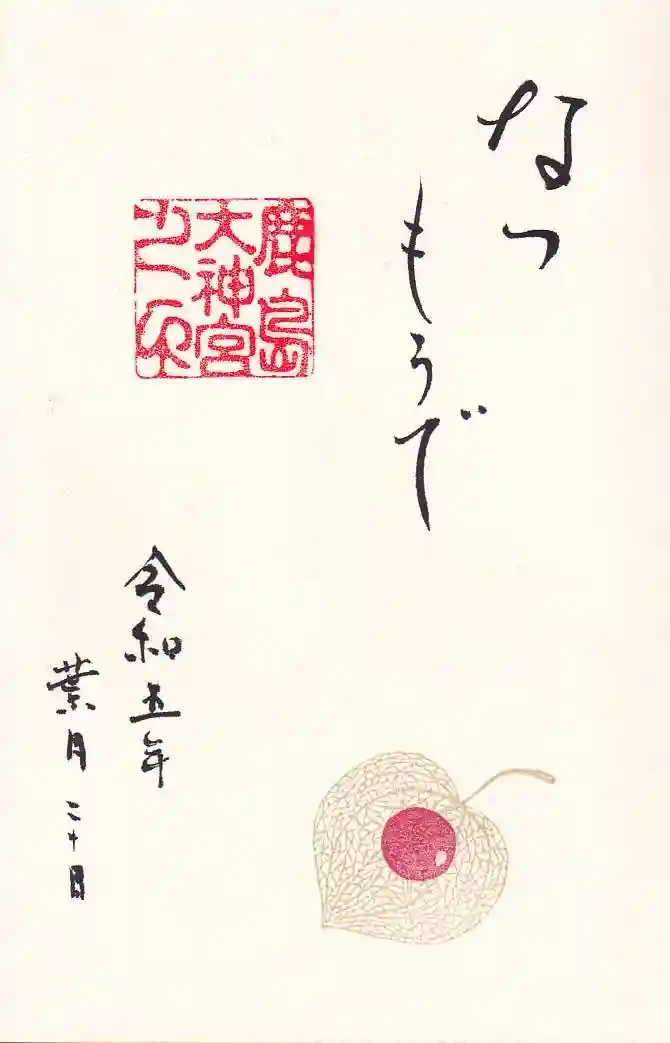 なつ
もうで
鹿島
大神宮
令和五年
葉月二十日